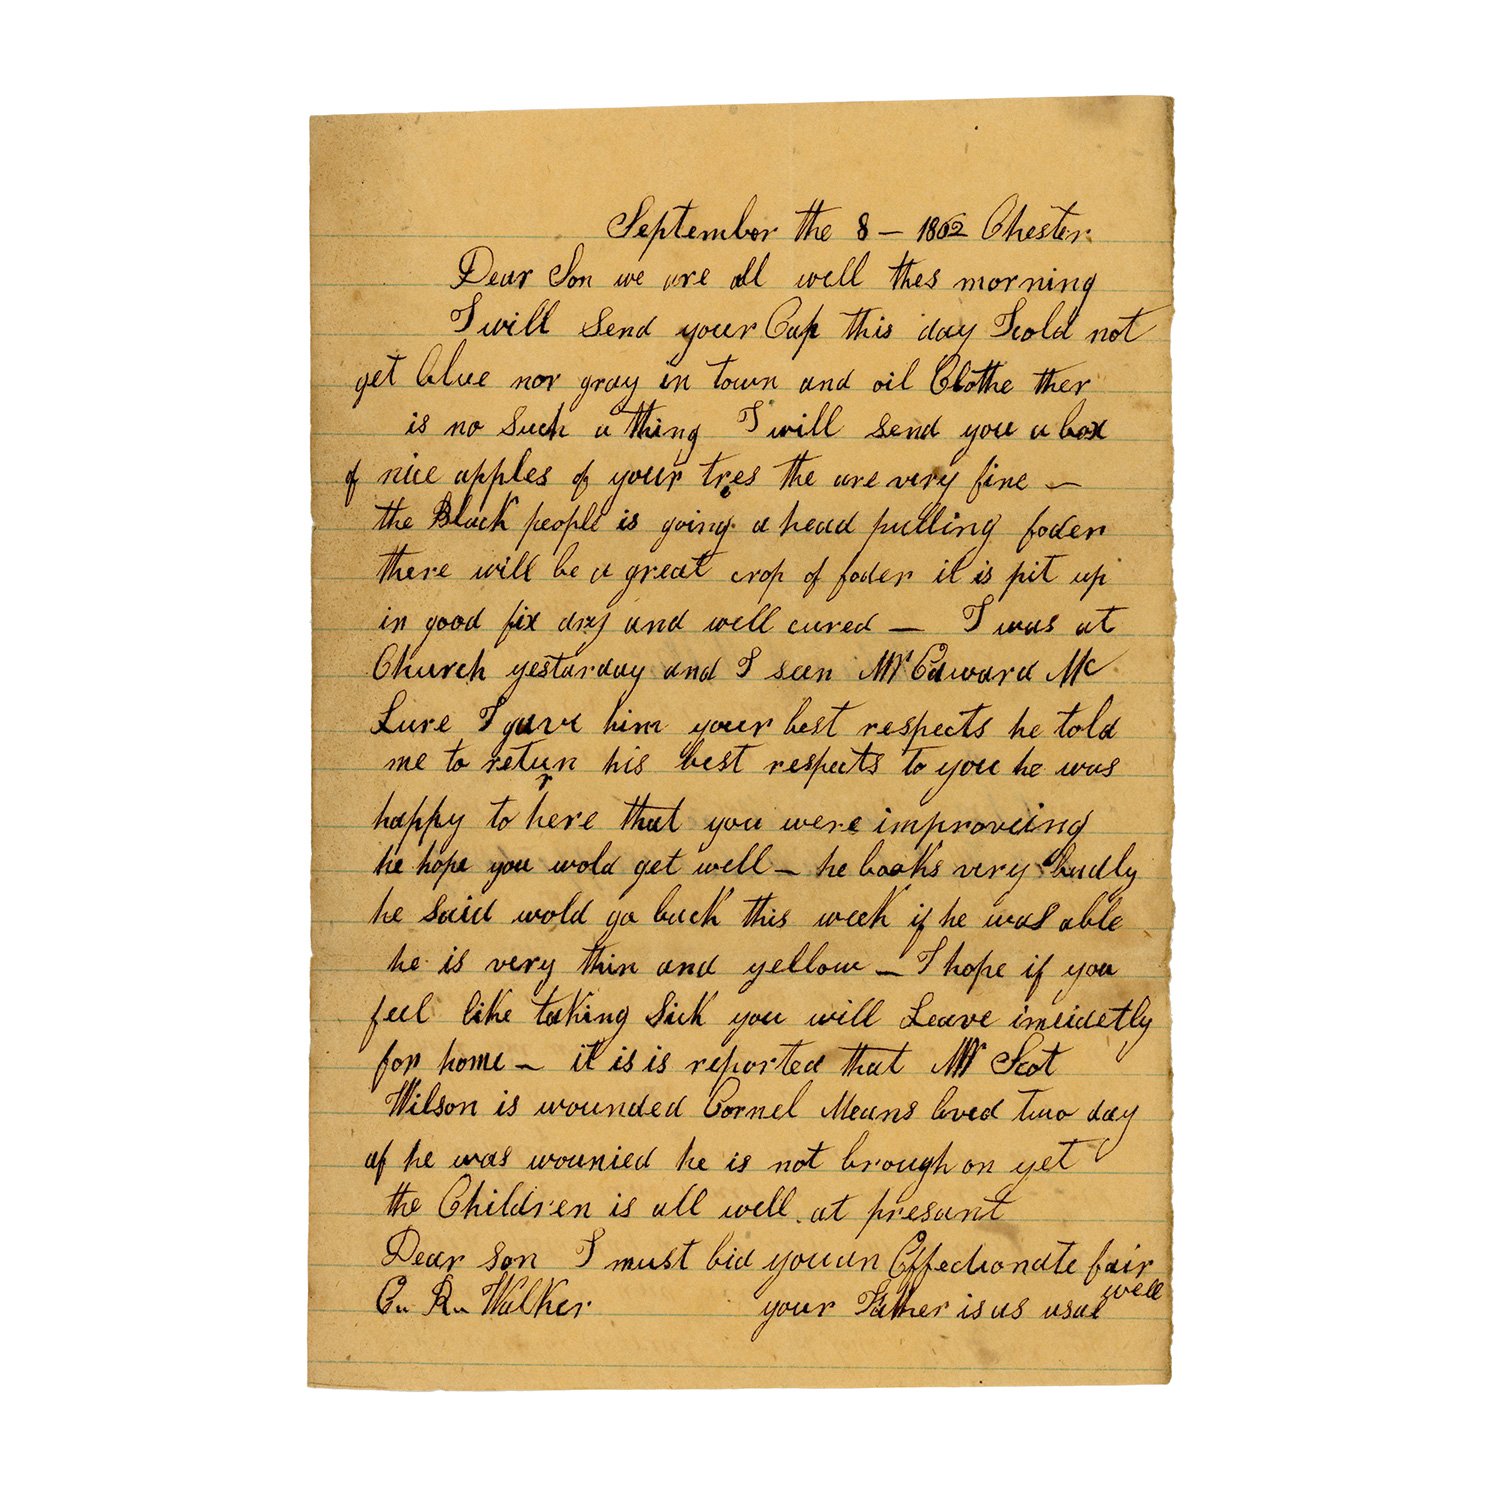 September the 8 – 1862 Chester
Dear Son we are all well thes morning
I will Send your Cap this day I cold not
get blue nor gray in town and oil Clothe ther
is no Such a thing I will send you a box
of nice apples of your tres the are very fine –
the Black people is going a head pulling foder
there will be a great crop of foder it is pit up
in good fix dry and well cured – I was at
Church yestarday and I seen Mr Edward Mc
Lure I gave him your best respects he told
me to return his best respects to you he was
happy to here that you were improveing
he hope you wold get well – he looks very badly
he said wold go back this week if he was able
he is very thin and yellow – I hope if you
feel like taking Sick you will Leave imeidetly
for home – it is is reported that Mr Scot
Wilson is wounded Cornel Means lived two day
af he was wounied he is not brough on yet
the Children is all well at presant
Dear son I must bid you an Effectionate fair
well
C. R. Walker your Father is as usal